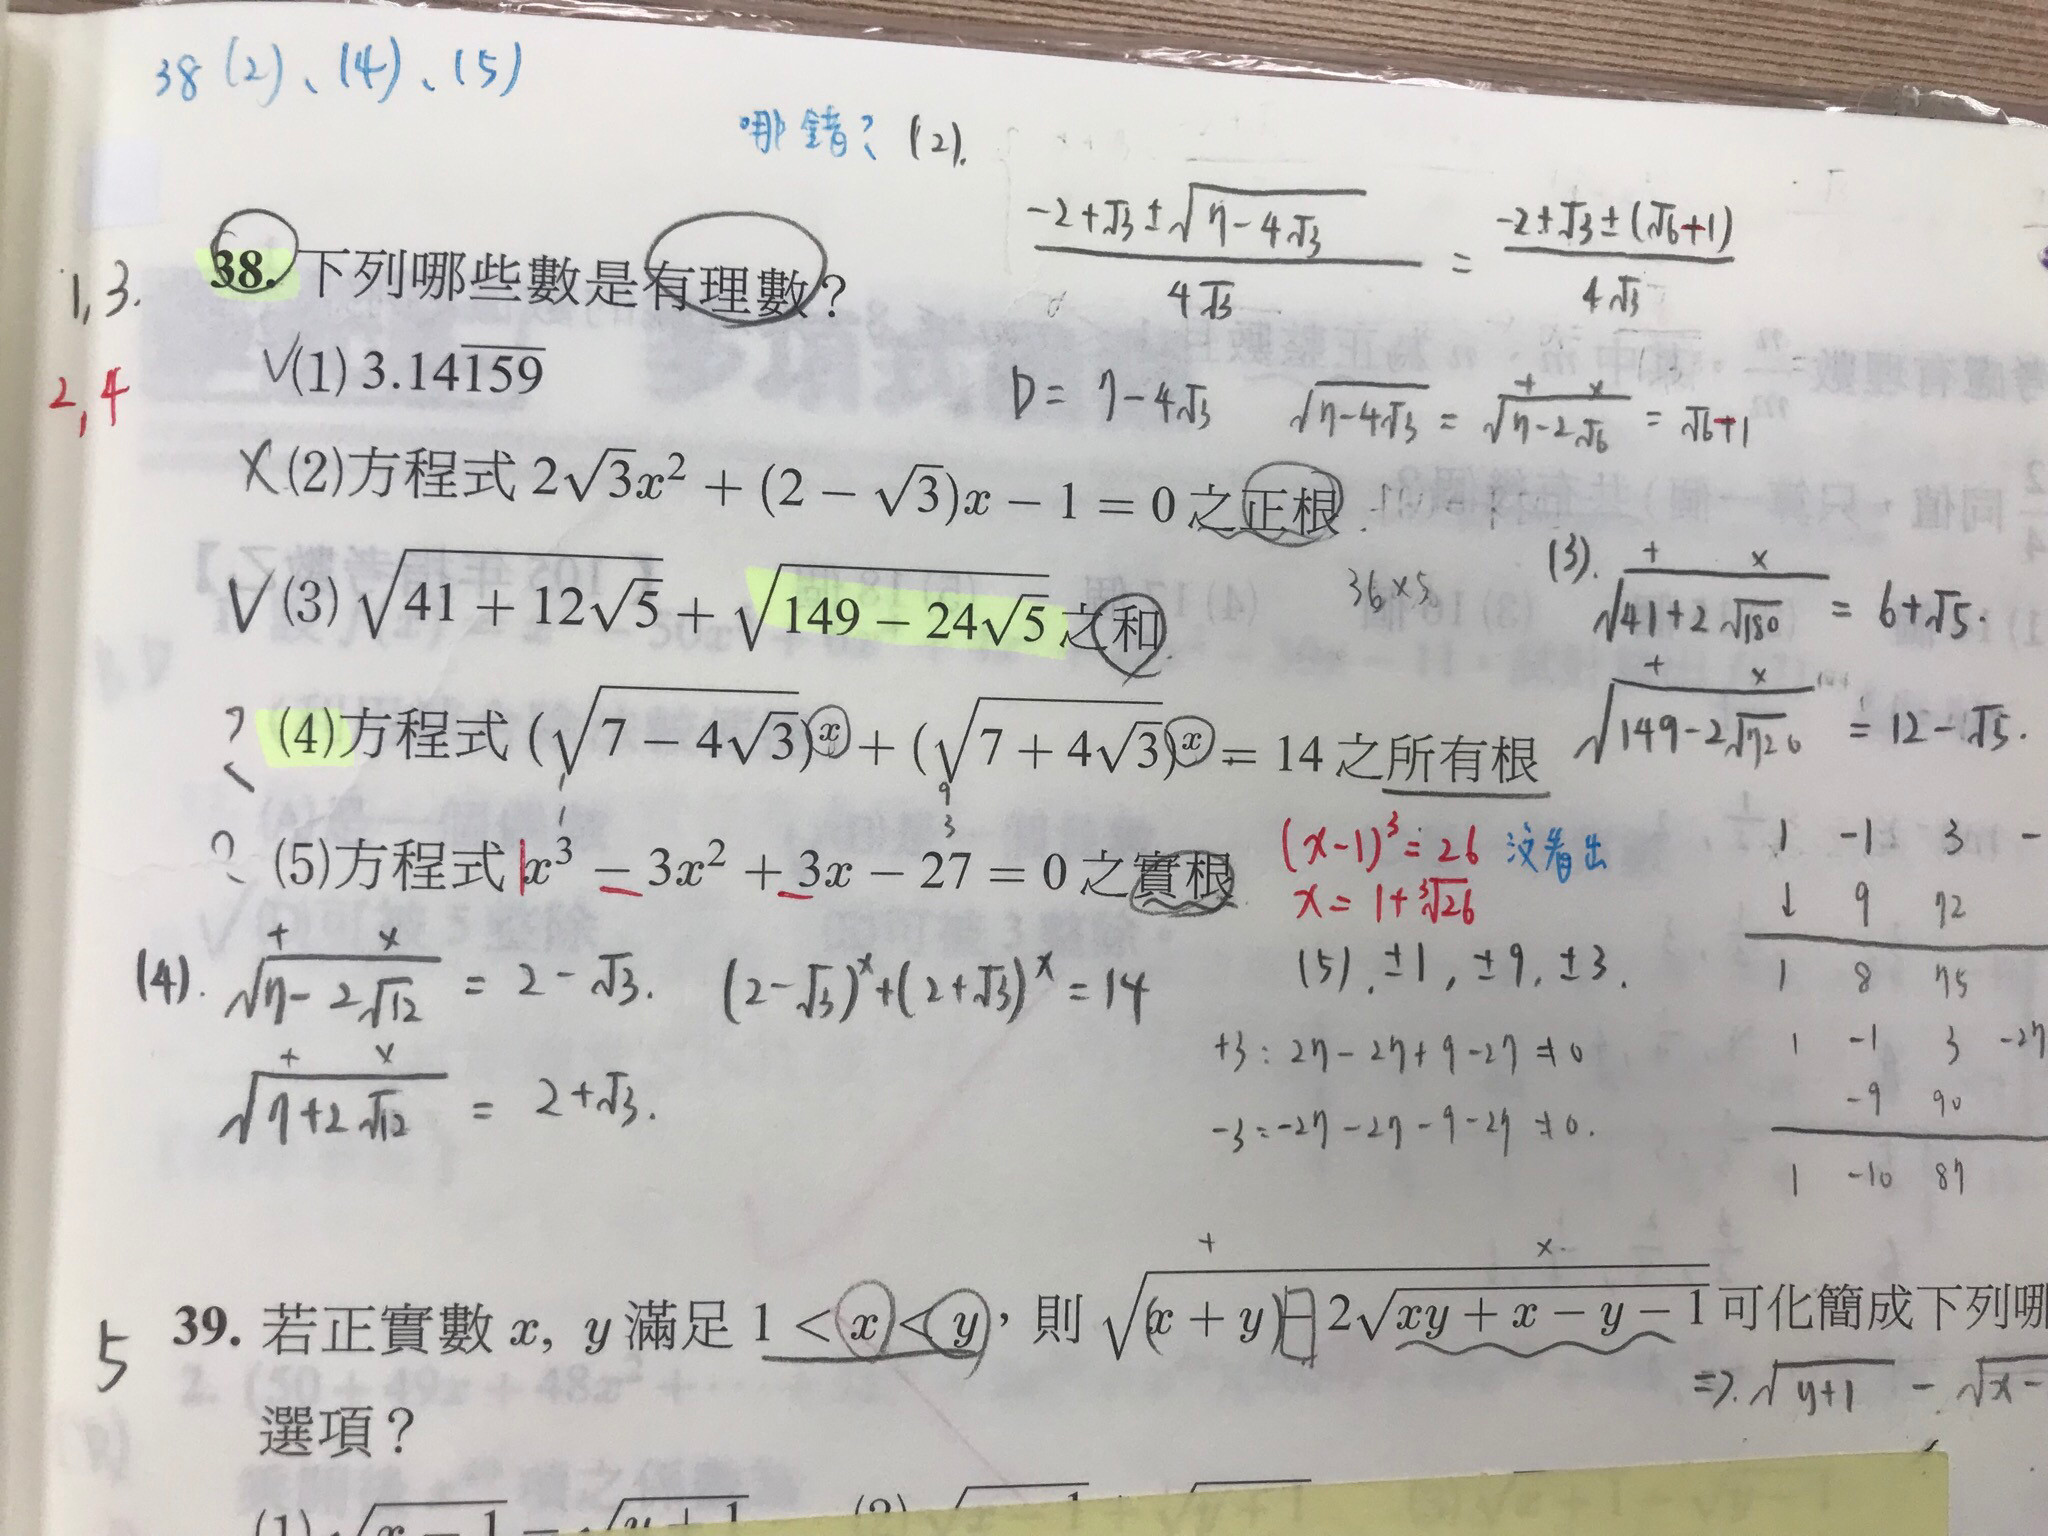 38 (2)、(4)、(5)
哪錯? (2).
-2+√3±√7-4√3 / 4√3 = -2±√3±(√6+1) / 4√3
1,3.
38. 下列哪些數是有理數?
2,4
V(1) 3.14159
D = 7-4√3 √7-4√3 = √7-2√6 = √6+1
X(2)方程式 2√3x² + (2 − √3)x − 1 = 0 之正根
V(3) √41 + 12√5 + √149 − 24√5 之和
36×5
(3). √41+2√180 = 6+√5.
√149-2√720 = 12-√5.
? (4)方程式 (√7 − 4√3)ˣ + (√7 + 4√3)ˣ = 14 之所有根
1 9
1 3
? (5)方程式 x³ − 3x² + 3x − 27 = 0 之實根
(x-1)³=26 沒看出
x = 1+∛26
1 -1 3 -
↓ 9 72
1 8 75
(4). √7-2√12 = 2-√3. (2-√3)ˣ+(2+√3)ˣ=14
(5). ±1, ±9, ±3.
+3: 27-27+9-27≠0
1 -1 3 -27
-9 90
√7+2√12 = 2+√3.
-3:-27-27-9-27≠0.
1 -10 87
5
39. 若正實數 x, y 滿足 1 < x < y，則 √(x + y) − 2√xy + x − y − 1 可化簡成下列哪
⇒ √y+1 - √x-
選項?
(1) √x − 1 − √y + 1